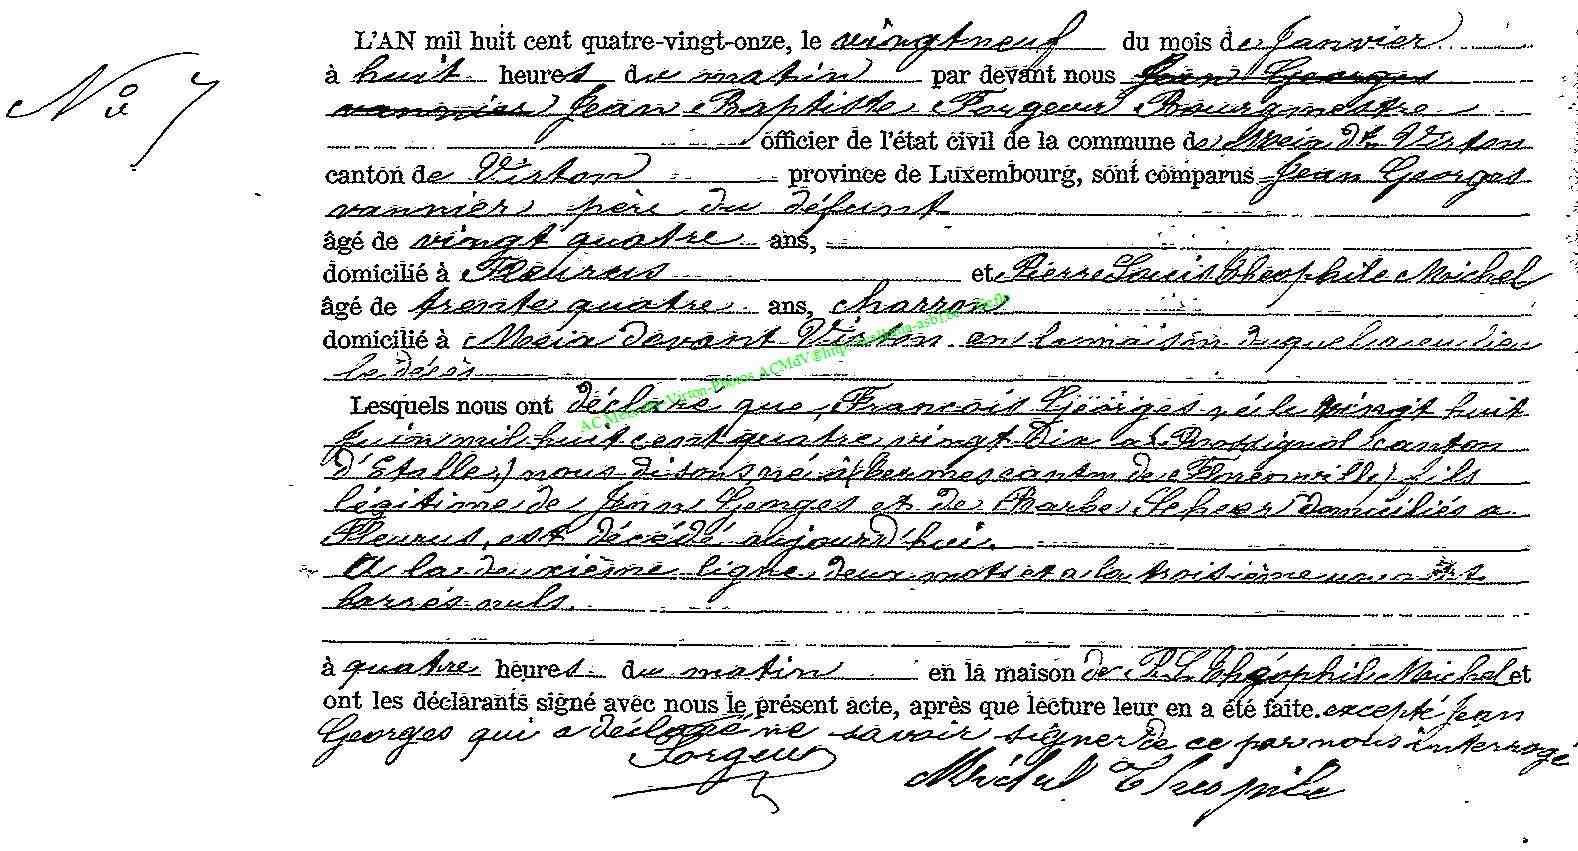 L'AN mil huit cent quatre-vingt-onze, le vingt neuf du mois de Janvier
N° 7
à huit heures du matin par devant nous Jean Georges
vannier Jean Baptiste Forgeur Bourgmestre
officier de l'état civil de la commune de Meix dt Virton
canton de Virton province de Luxembourg, sont comparus Jean Georges
vannier père du défunt
âgé de vingt quatre ans,
domicilié à Fleurus et Pierre Louis Théophile Michel
âgé de trente quatre ans, charron
domicilié à Meix devant Virton en la maison duquel a eu lieu
le décès
Lesquels nous ont déclaré que François Georges né le vingt huit
Juin mil huit cent quatre vingt dix à Rossignol canton
d'Etalle) nous disons né à canton de fils
légitime de Jean Georges et de Barbe Scheer domiciliés a
Fleurus, est décédé aujourd'hui.
A la deuxième ligne deux mots et a la troisième un mot
barrés nuls.
à quatre heures du matin en la maison de P. L. Théophile Michel et
ont les déclarants signé avec nous le présent acte, après que lecture leur en a été faite. excepté Jean
Georges qui a déclaré ne savoir signer de ce par nous interrogé
Forgeur
Michel Théophile